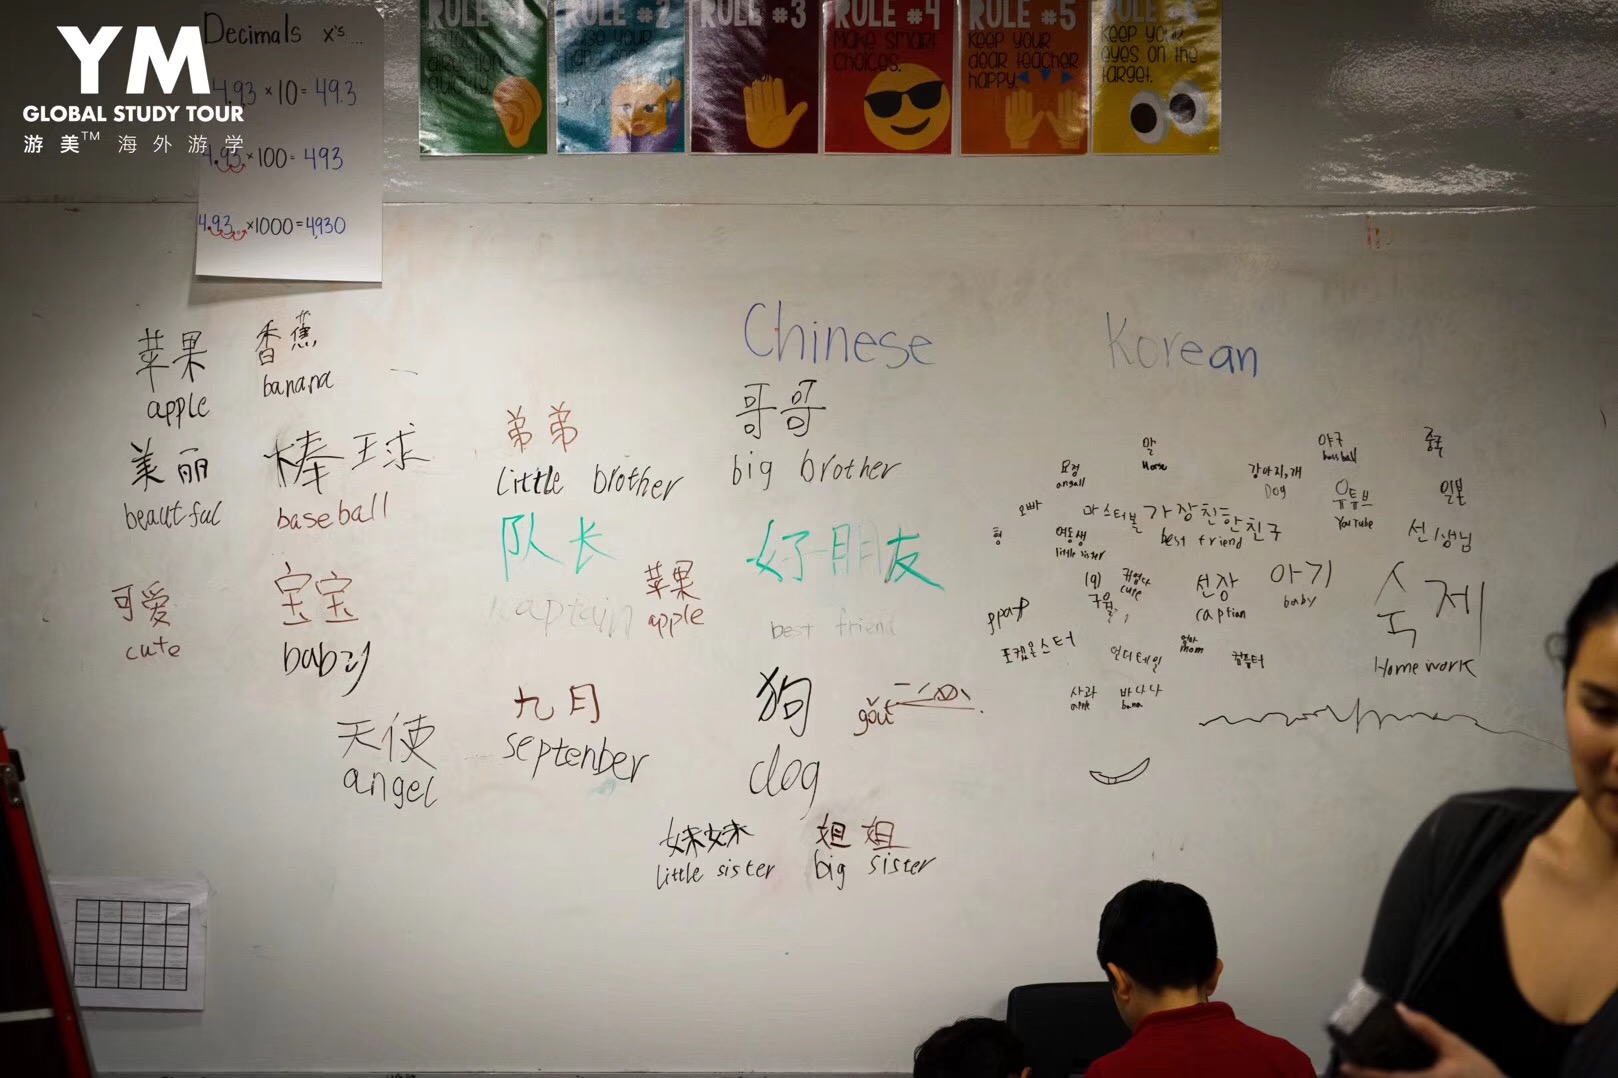 YM
GLOBAL STUDY TOUR
游美™ 海外游学
Decimals x's...
4.93 ×10 = 49.3
4.93 ×100 = 493
4.93 ×1000 = 4,930
RULE #1
RULE #2
RULE #3
RULE #4
Make smart
choices.
RULE #5
Keep your
dear teacher
happy.
Keep your
eyes on the
target.
苹果
apple
香蕉
banana
美丽
beautful
棒球
baseball
可爱
cute
宝宝
baby
天使
angel
弟弟
little brother
队长
kaptain
苹果
apple
九月
septenber
Chinese
哥哥
big brother
好朋友
best friend
狗
gǒu
dog
妹妹
little sister
姐姐
big sister
Korean
말
Horse
야구
요정
angall
강아지,개
Dog
유튜브
YouTube
일본
오빠
형
마스터볼
가장친한친구
best friend
선생님
여동생
little sister
(9)
구월
귀엽다
cute
선장
caption
아기
baby
숙제
Home work
포켓몬스터
언더테일
엄마
mom
컴퓨터
사과
바나나
bana